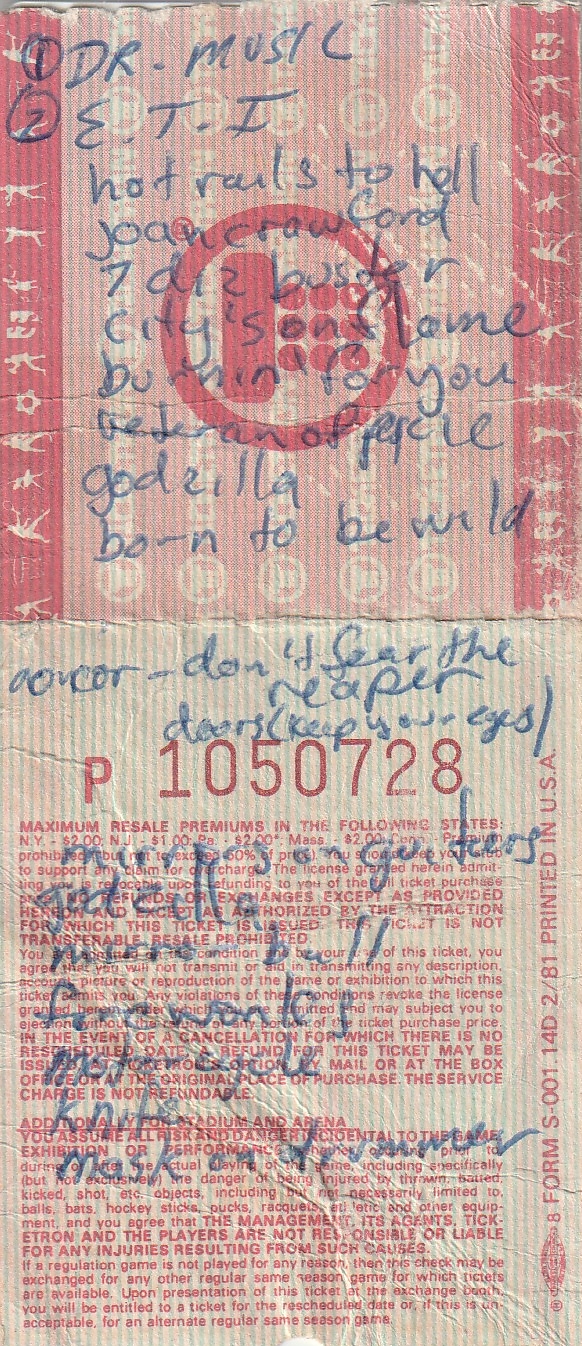 ① DR. MUSIC
② E.T.I
hot rails to hell
joan crawford
7 diz buster
city's on flame
burnin' for you
veteran of psycic
godzilla
born to be wild
®
don't fear the
reaper
doors (keep your eyes)
P 1050728
MAXIMUM RESALE PREMIUMS IN THE FOLLOWING STATES:
N.Y. - $2.00; N.J. - $1.00; Pa. - $2.00; Mass. - $2.00; Conn. - Premium
prohibited (but not to exceed 50% of price). You should keep your stub
to support any claim for overcharge. The license granted herein admit-
ting you is revocable upon refunding to you of the full ticket purchase
price. NO REFUNDS OR EXCHANGES EXCEPT AS PROVIDED
HEREON AND EXCEPT AS AUTHORIZED BY THE ATTRACTION
FOR WHICH THIS TICKET IS ISSUED. THIS TICKET IS NOT
TRANSFERABLE. RESALE PROHIBITED.
You are admitted on condition, and by your use of this ticket, you
agree that you will not transmit or aid in transmitting any description,
account, picture or reproduction of the game or exhibition to which this
ticket admits you. Any violations of these conditions revoke the license
granted hereunder which you are admitted and may subject you to
ejection without the return of any portion of the ticket purchase price.
IN THE EVENT OF A CANCELLATION FOR WHICH THERE IS NO
RESCHEDULED DATE, A REFUND FOR THIS TICKET MAY BE
ISSUED AT TICKETRON'S OPTION BY MAIL OR AT THE BOX
OFFICE OR AT THE ORIGINAL PLACE OF PURCHASE. THE SERVICE
CHARGE IS NOT REFUNDABLE.
tears
godzilla
bull
motorcycle
knife
mask on drummer
ADDITIONALLY FOR STADIUM AND ARENA
YOU ASSUME ALL RISK AND DANGER INCIDENTAL TO THE GAME,
EXHIBITION OR PERFORMANCE whether occurring prior to,
during or after the actual playing of the game, including specifically
(but not exclusively) the danger of being injured by thrown, batted,
kicked, shot, etc. objects, including but not necessarily limited to,
balls, bats, hockey sticks, pucks, racquets, athletic and other equip-
ment, and you agree that THE MANAGEMENT, ITS AGENTS, TICK-
ETRON AND THE PLAYERS ARE NOT RESPONSIBLE OR LIABLE
FOR ANY INJURIES RESULTING FROM SUCH CAUSES.
If a regulation game is not played for any reason, then this check may be
exchanged for any other regular same season game for which tickets
are available. Upon presentation of this ticket at the exchange booth,
you will be entitled to a ticket for the rescheduled date or, if this is un-
acceptable, for an alternate regular same season game.
8 FORM S-001 14D 2/81 PRINTED IN U.S.A.